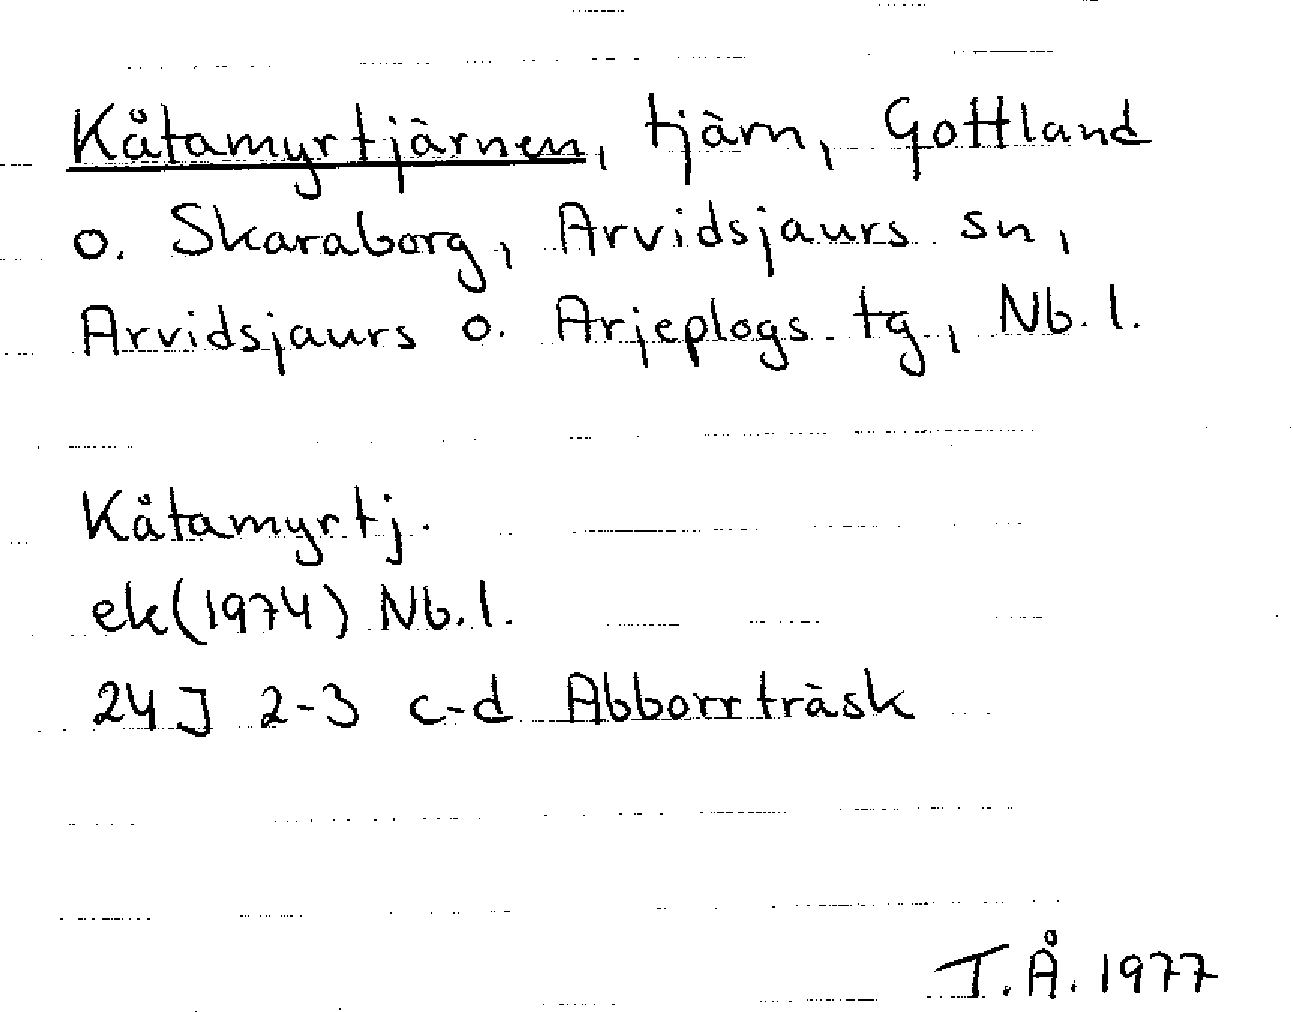 Kåtamyrtjärnen, tjärn, Gottland
o. Skaraborg, Arvidsjaurs sn,
Arvidsjaurs o. Arjeplogs tg, Nb. l.
Kåtamyrtj.
ek(1974) Nb. l.
24J 2-3 c-d Abborrträsk
T.Å. 1977